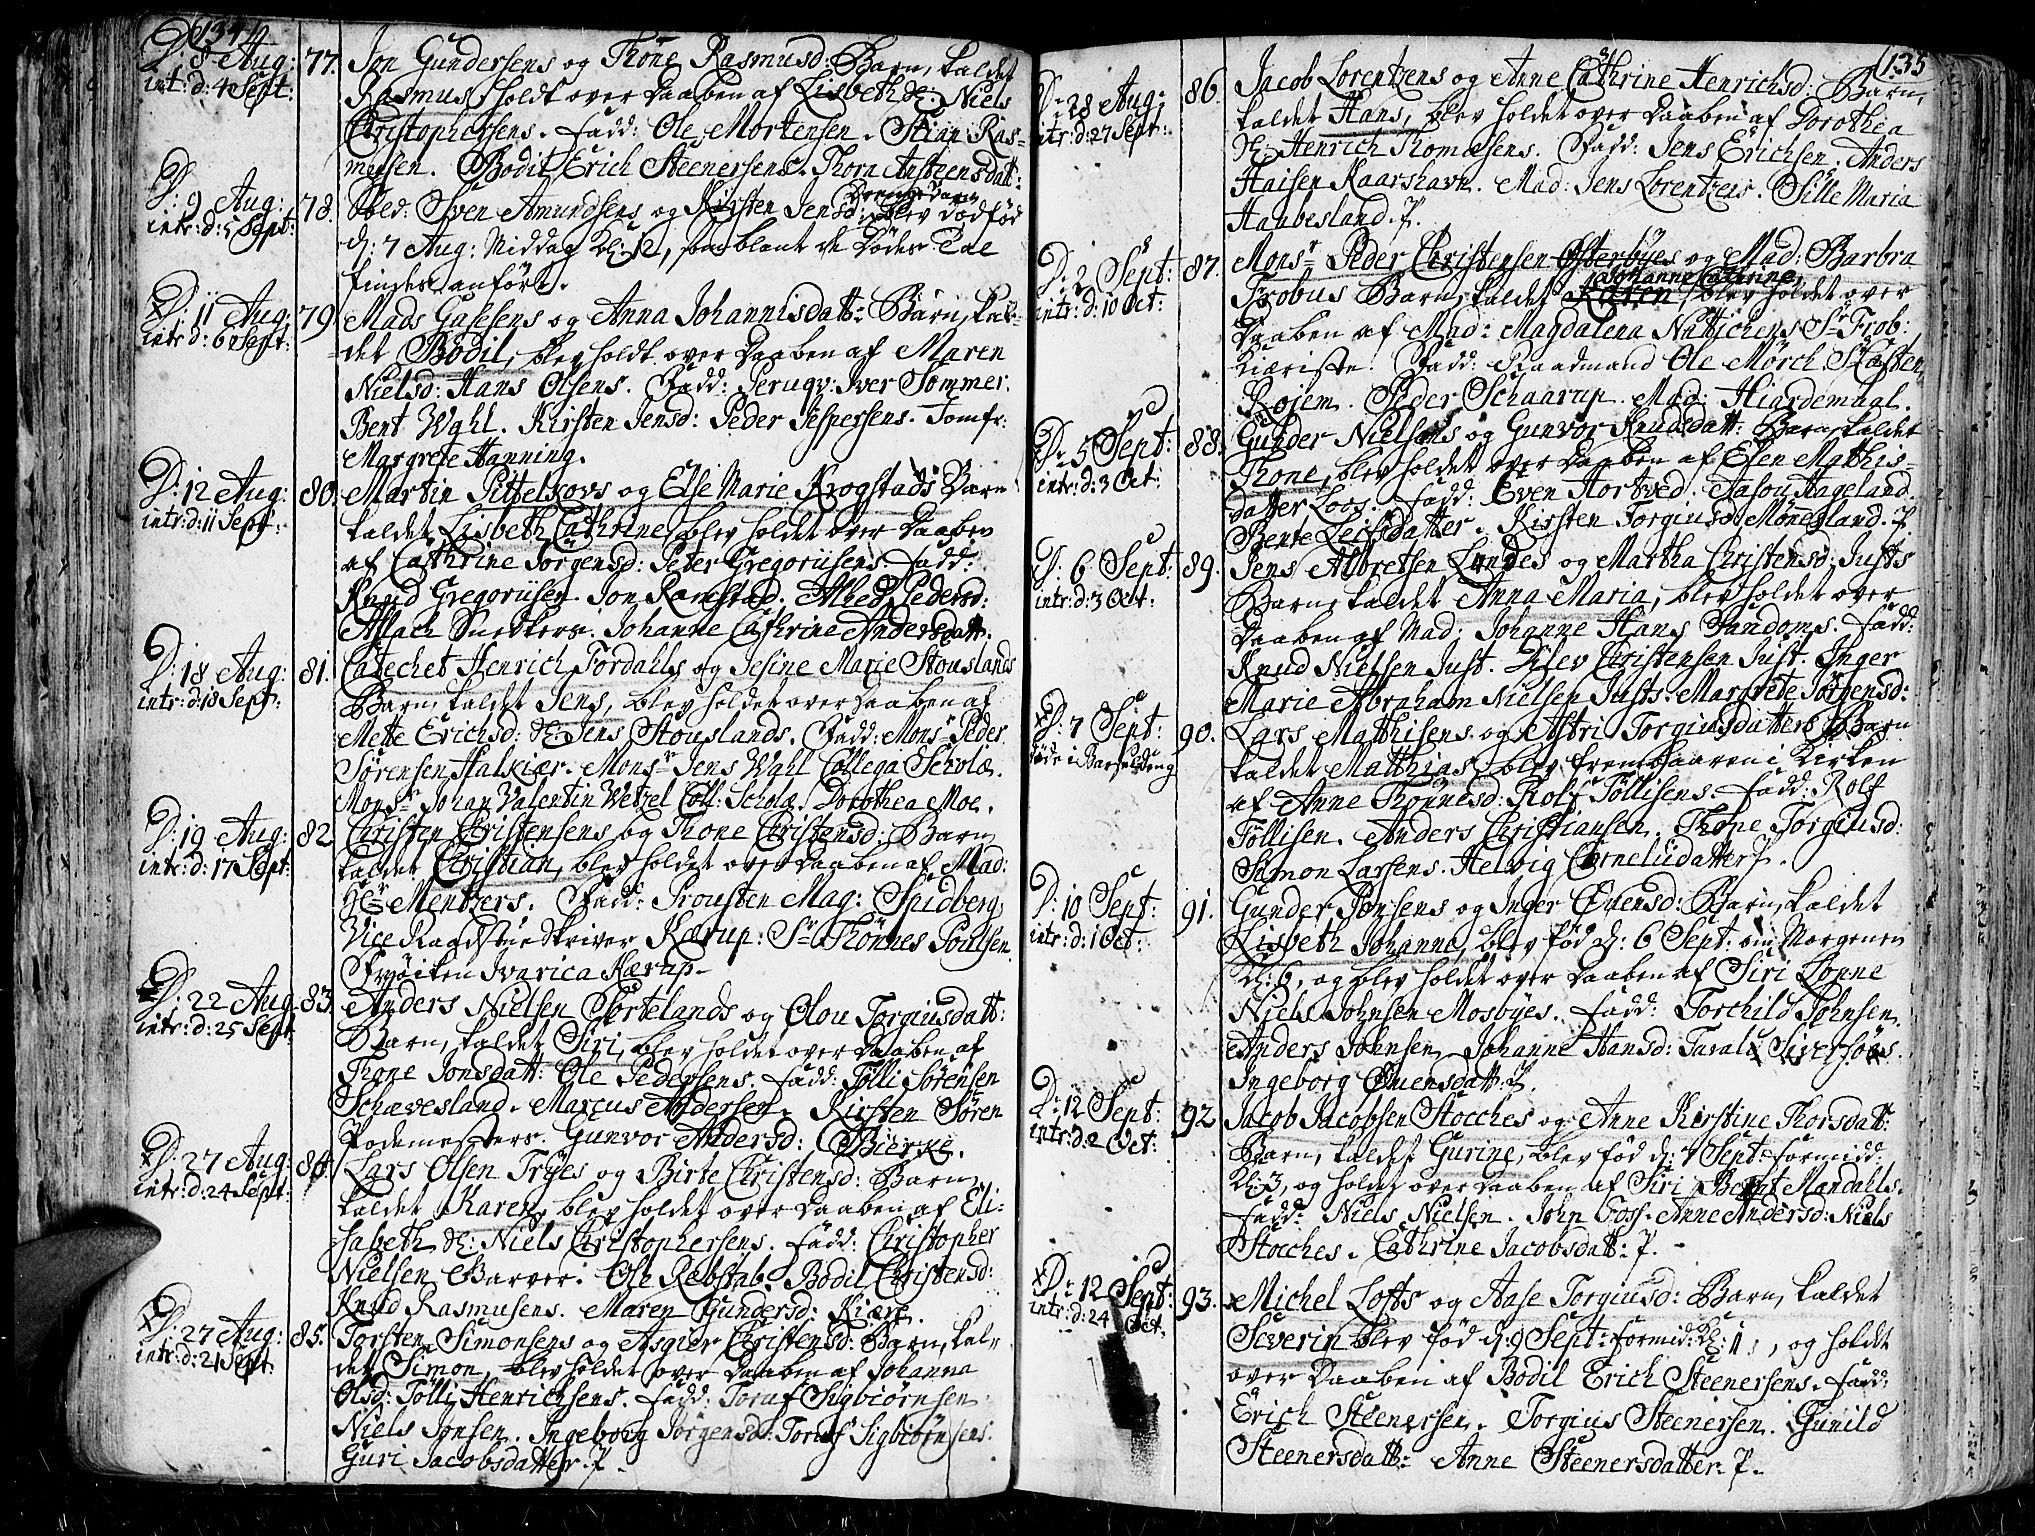 134
D: 8 Aug: 77. Jon Gundersens og Thone Rasmusd: Barn, kaldet
intr: d: 4 Sept: Rasmus, holdt over Daaben af Lisbeth Niels
Christophersens. Fadd: Ole Mortensen. Stian Ras-
musen. Bodil Erich Steenersens. Thorn Ansteensdatt:
D: 9 Aug: 78. Sven Amundsens og Kirsten Jensd: Drenge Barn blev dødfød
intr: d: 5 Sept: d: 7 Aug: Middag Kl: 12, som blant de Dødes Tal
findes anført.
D: 11 Aug: 79. Mads Gasesens og Anna Johannisdatt: Barn, kal-
intr: d: 6 Sept: det Bodil, blev holdt over Daaben af Maren
Nielsd: Hans Olsens. Fadd: Peruqv: Iver Sommer.
Bent Wahl. Kirsten Jensd: Peder Jespersens. Jomfr:
Margrete Hanning.
D: 12 Aug: 80. Martin Pittelkovs og Else Marie Krogstads Barn
intr: d: 11 Sept: kaldet Lisbeth Cathrine, blev holdet over Daaben
af Cathrine Jørgensd: Peter Gregoriisens. Fadd:
Knud Gregoriisen. Jon Ramstad. Abed Pedersd:
Aslach Snedkers. Johanne Cathrine Andersdatt.
D: 18 Aug: 81. Catechet Henrich Tordahls og Jesine Marie Stouslands
intr: d: 18 Sept: Barn, kaldet Jens, blev holdet over Daaben af
Mette Erichsd: Jens Stouslands. Fadd: Mons: Peder
Sørensen Halkiær. Mons: Jens Wahl Collega Scholæ.
Mons: Johan Valentin Wetzel Coll: Scholæ. Dorothea Moe.
D: 19 Aug: 82 Christen Christensens og Thone Christensd: Barn
intr: d: 17 Sept: kaldet Christian, blev holdet over Daaben af Mad:
Mentzers. Fadd: Prousten Mag: Spidberg.
Vice Raadstue Skriver Kærup: Sr Thönnes Poulsen.
Frøiken Ivarica Kærup.
D: 22 Aug: 83. Anders Nielsen Sortelands og Olou Torgiusdatt:
intr: d: 25 Sept Barn, kaldet Siri, blev holdet over Daaben af
Thone Jonsdatt: Ole Pedersens. Fadd: Tölli Sörensen
Schævesland. Marcus Andersen. Kirsten Sören
Podemesters. Gunvor Andersd: Bierke.
D: 27 Aug: 84. Lars Olsen Tryes og Birte Christensd: Barn
intr: d: 24 Sept: kaldet Karen, blev holdet over Daaben af Eli-
sabeth Niels Christophersens. Fadd: Christopher
Nielsen Barver. Ole Rebstab. Bodil Christensd:
Knud Rasmusens. Maren Gundersd: Kiær.
D: 27 Aug: 85. Torsten Simonsens og Asgier Christensd: Barn, kal-
intr: d: 21 Sept: det Simon, blev holdet over Daaben af Johanna
Olsd: Tölli Henrichsens. Fadd: Toraf Sigbiörnsen
Niels Jonsen. Ingeborg Jörgensd: Toraf Sigbiörnsens.
Guri Jacobsdatter. P.
135
D: 28 Aug: 86. Jacob Lorentzens og Anne Cathrine Henrichsd: Barn,
intr: d: 27 Sept: kaldet Hans, blev holdet over Daaben af Dorothea
Henrich Thomasens. Fadd: Jens Erichsen. Anders
Haisen Kaarshavn. Mad: Jens Lorentzens. Sille Maria
Haabesland. P.
D: 2 Sept: 87. Monsr Peder Christensen Østerbyes og Mad: Barbra
intr: d: 10 Oct: Frobus Barn, kaldet Johanne Cathrine, blev holdet over
Daaben af Mad: Magdalena Nuttichens Sr Frob:
Kiæriste. Fadd: Raadmand Ole Mörch. Skosten
Rojem. Peder Schaarup. Mad: Hiardemaal.
D: 5 Sept: 88. Gunder Nielsens og Gunvor Knudsdatt: Barn, kaldet
intr: d: 3 Oct: Thone, blev holdet over Daaben af Elen Mathis-
datter Loss. Fadd: Even Hortved. Aasou Hageland.
Bente Leifsdatter. Kirsten Torgiusd: Mønnesland. P.
D: 6 Sept: 89. Jens Albretsen Lundes og Martha Christensd: Justs
intr: d: 3 Oct: Barn, kaldet Anna Maria, blev holdet over
Daaben af Mad: Johanne Hans Sandoms. Fadd:
Knud Nielsen Just. Ditlev Christensen Just. Inger
Marie Abraham Nielsen Justs. Margrete Jörgensd:
D: 7 Sept: 90. Lars Mathisens og Astri Torgiusdatters Barn
døde i Barselseng kaldet Matthias, blev frembaaren i Kirken
af Anne Thonnesd: Rolf Tøllisens. Fadd: Rolf
Tøllisen. Anders Christiansen. Thone Torgiusd:
Samon Larsens. Helvig Corneliidatter. P.
D: 10 Sept: 91. Gunder Jonsens og Inger Øvensd: Barn, kaldet
intr: d: 1 Oct: Lisbeth Johanna, blev fød d: 6 Sept: om Morgenen
Kl: 6, og blev holdet over Daaben af Siri Lonne
Niels Johnsen Mosbyes. Fadd: Torchild Johnsen.
Anders Johnsen. Johanne Hansd: Taral Siversöns.
Ingeborg Øvensdatt: P.
D: 12 Sept: 92 Jacob Jacobsen Stocches og Anne Kirstine Thorsdatt:
intr: d: 2 Oct: Barn, kaldet Gurine, blev fød d: 7 Sept: formidd:
Kl: 3, og holdet over Daaben af Siri Bernt Mandalls.
Fadd: Niels Nielsen. John Foss. Anne Andersd: Niels
Stocches. Cathrine Jacobsdatt: P.
D: 12 Sept: 93. Michel Lofts og Aase Torgiusd: Barn, kaldet
intr: d: 24 Oct. Severin blev fød d: 9 Sept: formid: Kl: 11, og holdt
over Daaben af Bodil Erich Steenersens. Fadd:
Erich Steenersen. Torgius Steenersen. Gunild
Steenersdatt: Anne Steenersdatter. P.